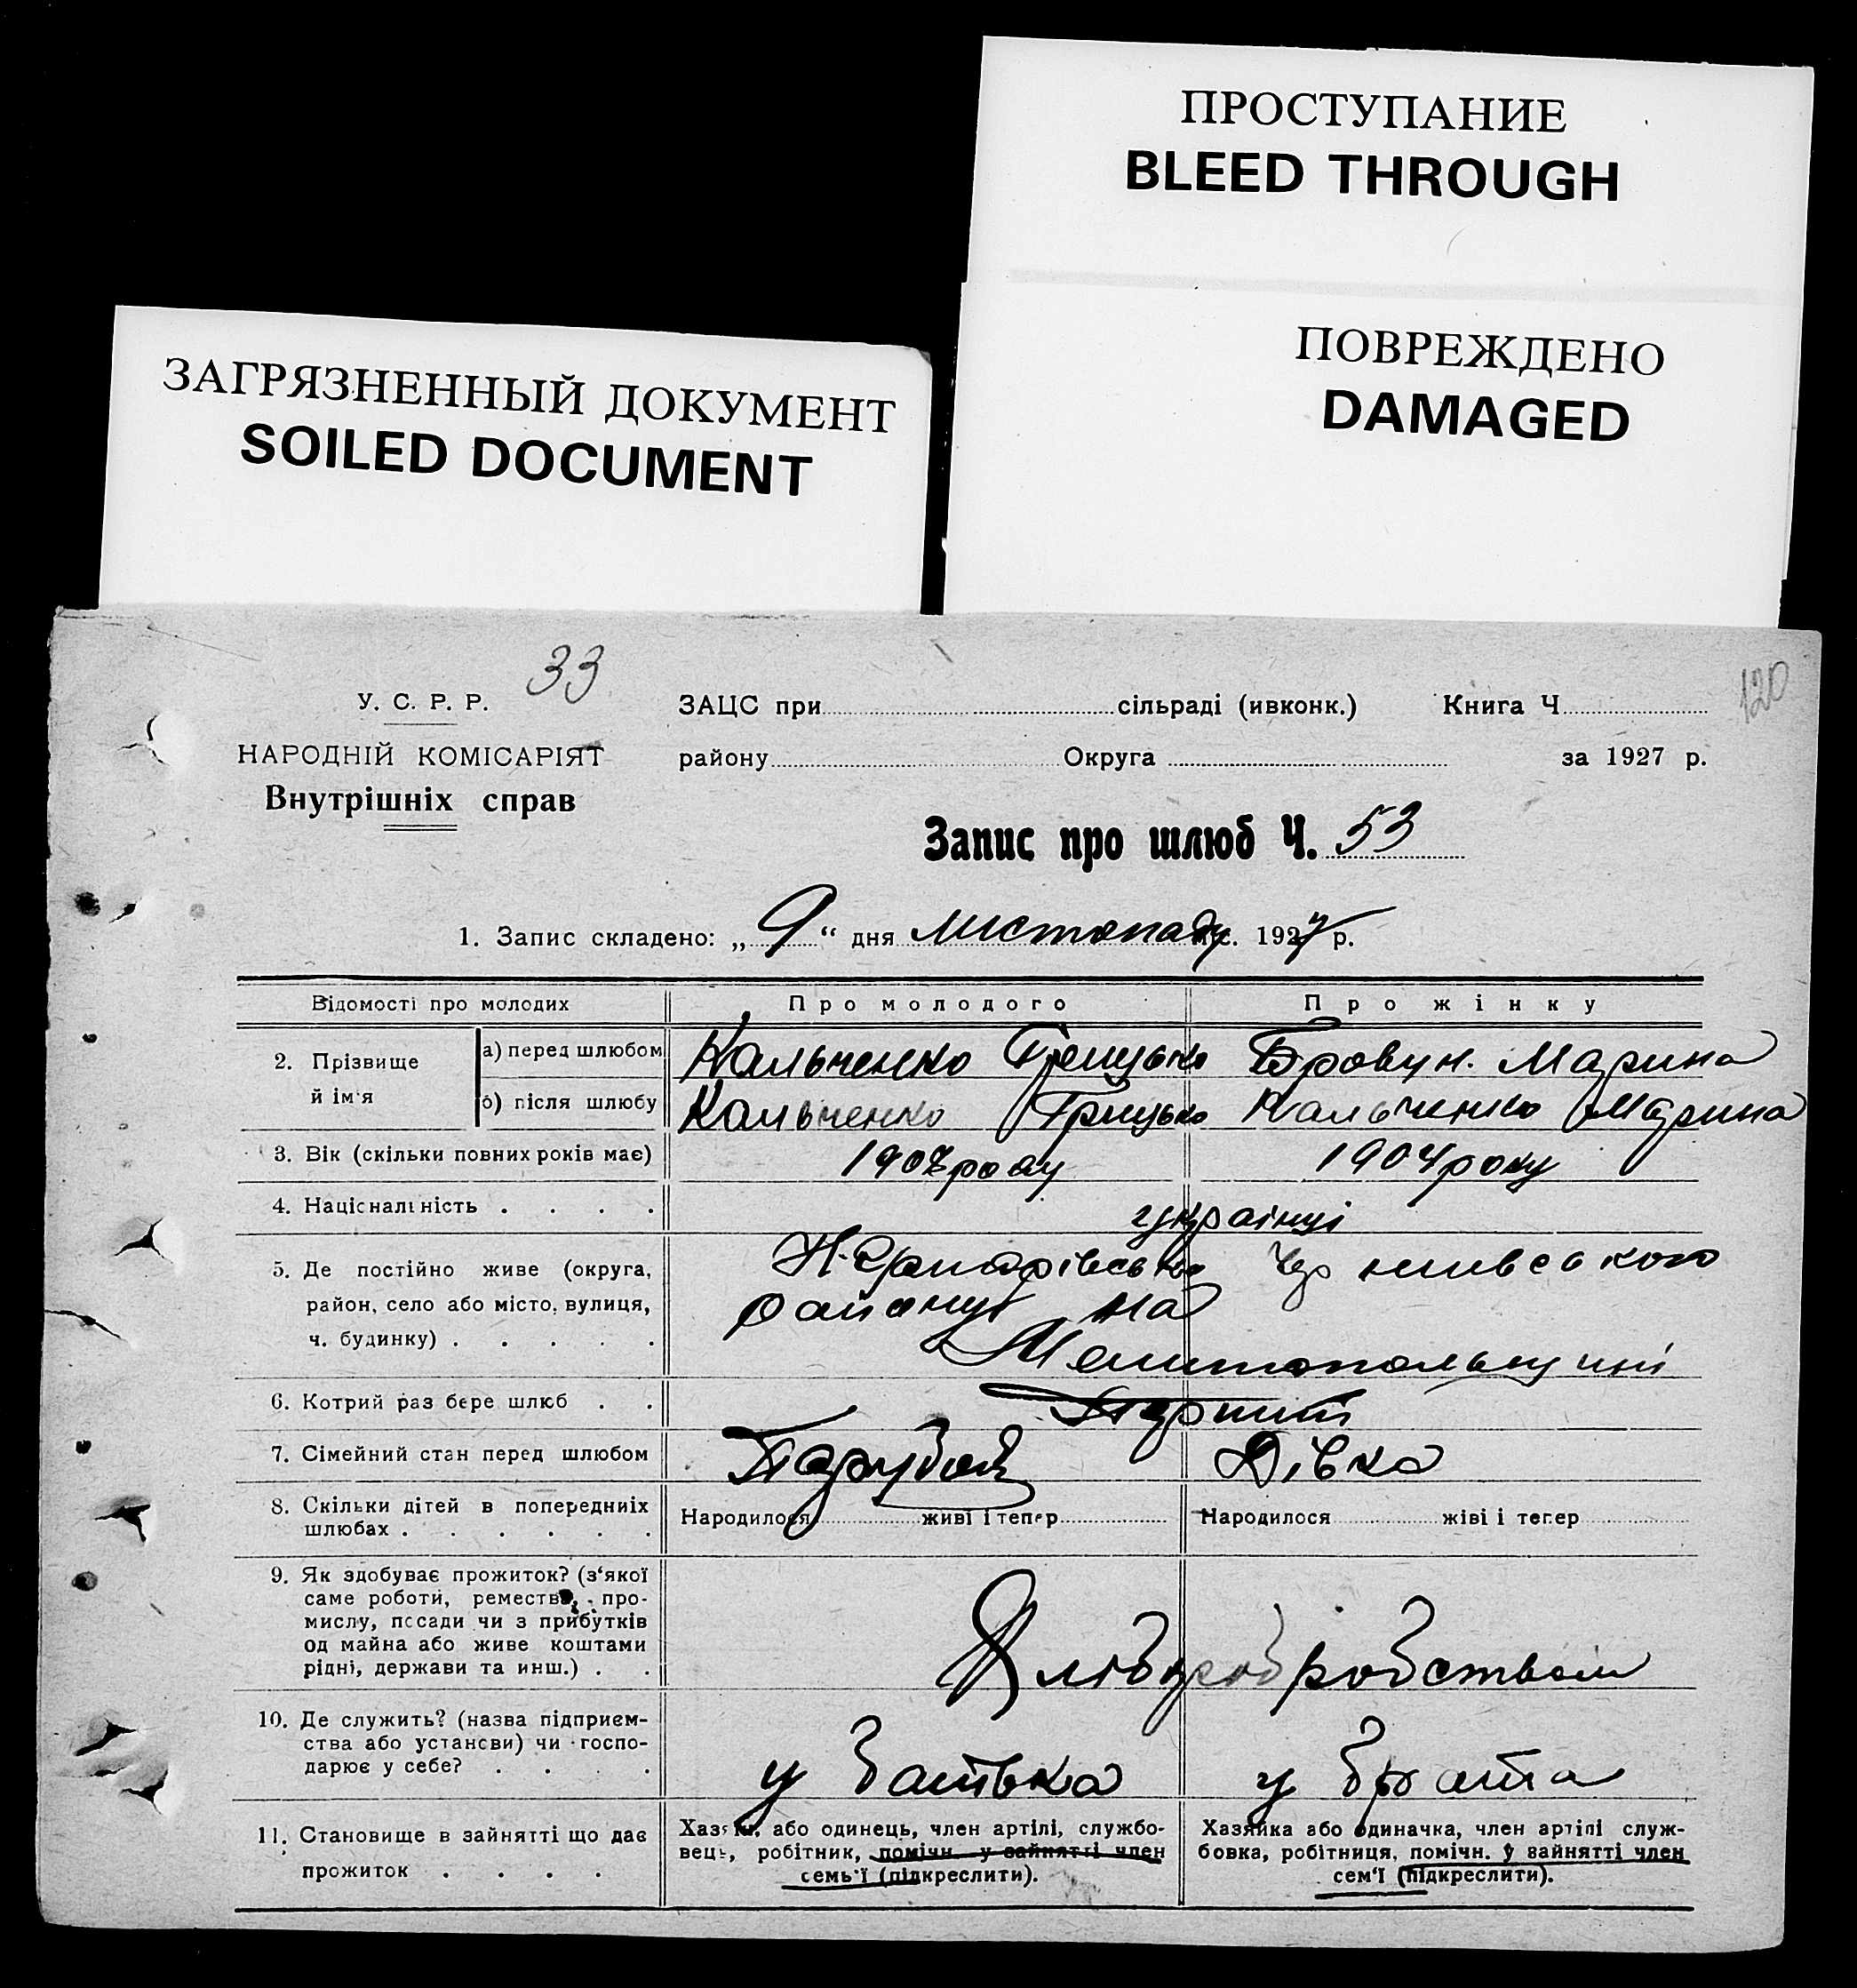 ПРОСТУПАНИЕ
BLEED THROUGH
ПОВРЕЖДЕНО
DAMAGED
ЗАГРЯЗНЕННЫЙ ДОКУМЕНТ
SOILED DOCUMENT
33
120
У. С. Р. Р.
НАРОДНІЙ КОМІСАРІЯТ
Внутрішніх справ
ЗАЦС при сільраді (ивконк.) Книга Ч
району Округа за 1927 р.
Запис про шлюб Ч. 53
1. Запис складено: „ 9 “ дня листопаду 1927 р.
Відомості про молодих Про молодого Про жінку
2. Прізвище й ім'я
а) перед шлюбом Кальченко Грицько Бровун. Марина
б) після шлюбу Кальченко Грицько Кальченко Марина
3. Вік (скільки повних років має) року 1904 року
4. Національність . . . . українці
5. Де постійно живе (округа,
район, село або місто, вулиця,
ч. будинку) . . . . .
району на
Мелитопольщині
6. Котрий раз бере шлюб . .
7. Сімейний стан перед шлюбом Парубок Дівка
8. Скільки дітей в попередниіх
шлюбах . . . . . .
Народилося живі і тепер Народилося жіві і тепер
9. Як здобуває прожиток? (з'якої
саме роботи, ремества, про-
мислу, посади чи з прибутків
од майна або живе коштами
рідні, держави та инш.) . .
робством
10. Де служить? (назва підприєм-
ства або установи) чи госпо-
дарює у себе? . . . .
у батька у брата
11. Становище в зайнятті що дає
прожиток . . . .
Хазяїн, або одинець, член артілі, службо-
вець, робітник, помічн. у зайнятті член
семь'ї (підкреслити).
Хазяйка або одиначка, член артілі служ-
бовка, робітниця, помічн. у зайнятті член
сем'ї (підкреслити).